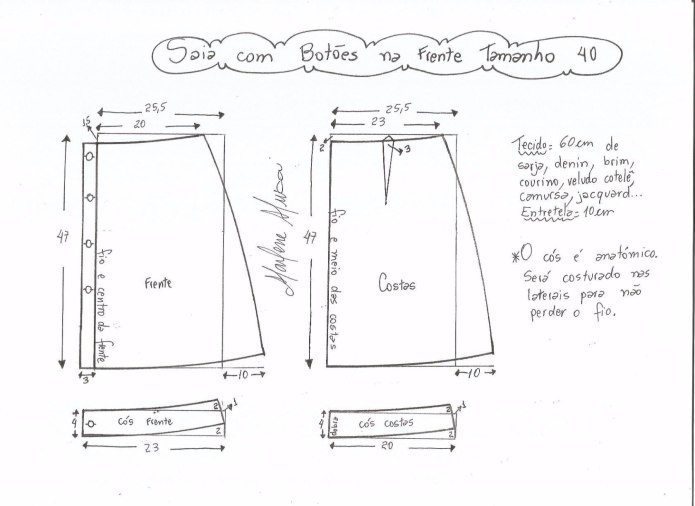 Saia com Botões na Frente Tamanho 40
25,5
20
1,5
47
fio e centro da frente
Frente
3
10
Marlene Mukai
25,5
23
2
3
47
fio e meio das costas
Costas
10
Tecido= 60cm de
sarja, denin, brim,
courino, veludo cotelê,
camursa, jacquard...
Entretela=10cm
*O cós é anatómico.
Será costurado nas
laterais para não
perder o fio.
4
cós Frente
2
1
2
23
4
dobra
cós costas
2
1
2
20